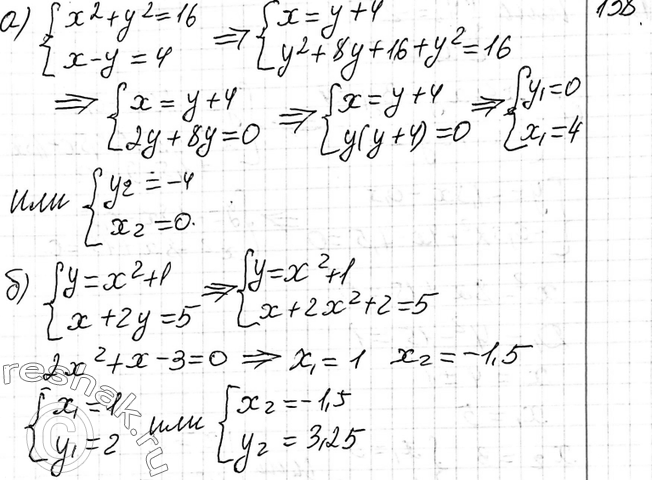 а) { x² + y² = 16 ; x - y = 4 ⇒ { x = y + 4 ; y² + 8y + 16 + y² = 16
138.
⇒ { x = y + 4 ; 2y + 8y = 0 ⇒ { x = y + 4 ; y(y + 4) = 0 ⇒ { y₁ = 0 ; x₁ = 4
или { y₂ = -4 ; x₂ = 0.
б) { y = x² + 1 ; x + 2y = 5 ⇒ { y = x² + 1 ; x + 2x² + 2 = 5
2x² + x - 3 = 0 ⇒ x₁ = 1 x₂ = -1,5
{ x₁ = 1 ; y₁ = 2 или { x₂ = -1,5 ; y₂ = 3,25
© reshak.ru